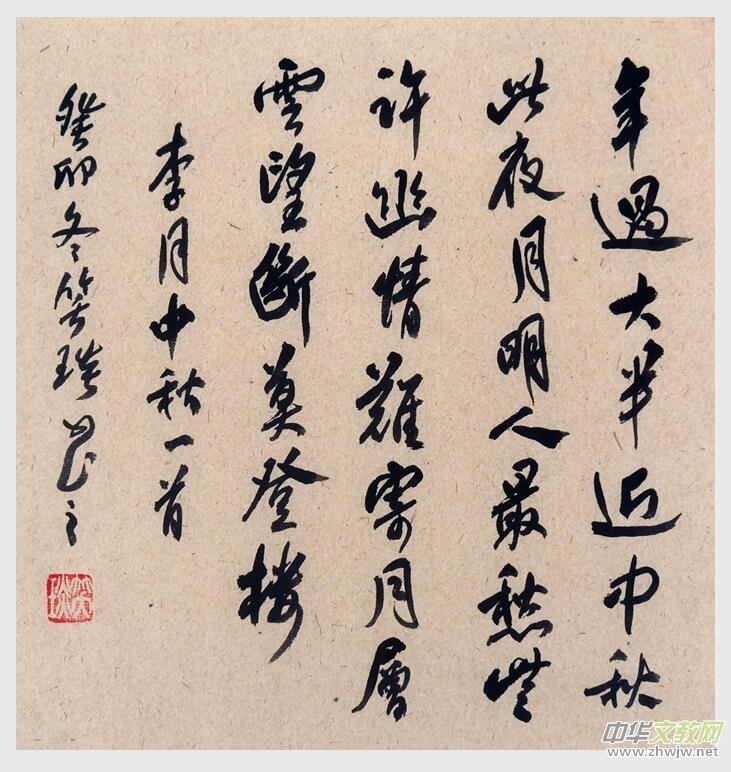 年過大半近中秋
此夜月明人最愁些
許幽情難寄月層
雲望斷莫登樓
李月中秋一首
癸卯冬笑之
中华文教网
www.zhwjw.net